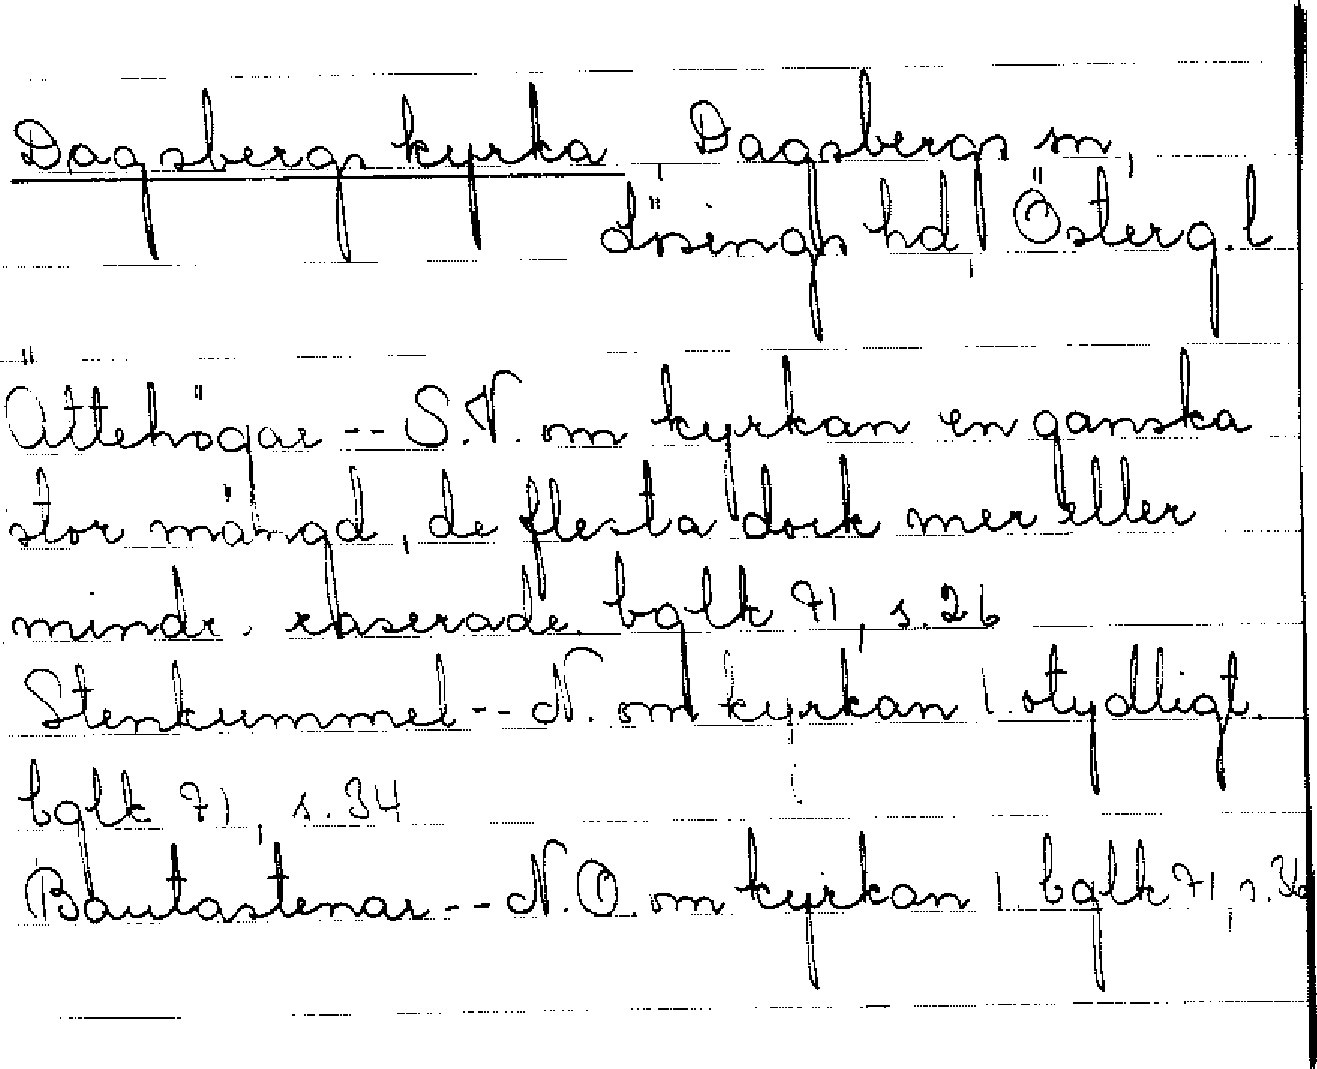 Dagsbergs kyrka, Dagsbergs sn,
Lösings hd, Österg.l
Ättehögar -- S.V. om kyrkan en ganska
stor mängd, de flesta dock mer eller
mindre raserade. bglk 71, s.26
Stenkummel -- N. om kyrkan 1 otydligt.
bglk 71, s.34
Bautastenar -- N.O. om kyrkan 1 bglk 71, s.36